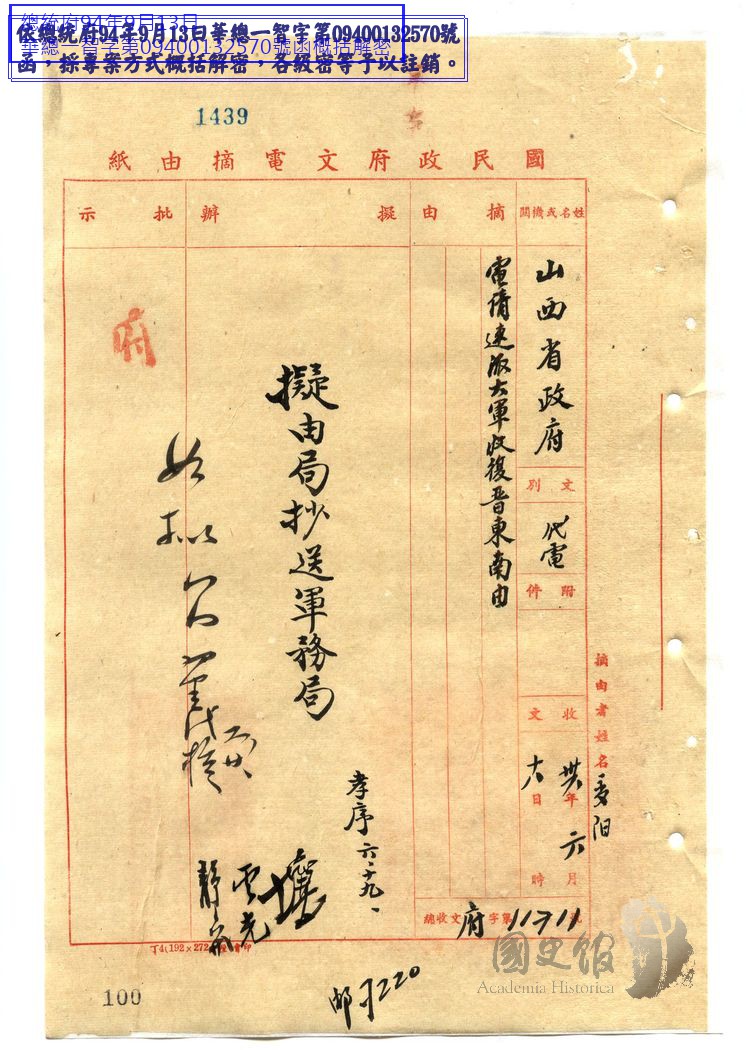 依總統府94年9月13日華總一智字第09400132570號
函，採專案方式概括解密，各級密等予以註銷。
總統府94年9月13日
華總一智字第09400132570號函概括解密
1439
國民政府文電摘由紙
姓名或機關
摘由
擬辦
批示
山西省政府
文別
代電
附件
收文
卅六年六月
十八日
時
電請速派大軍收復晋東南由
擬由局抄送軍務局
孝序 六、十九、
如擬
府
摘由者姓名
總收文 府字第11711號
丁4(192×272
100
國史館
Academia Historica